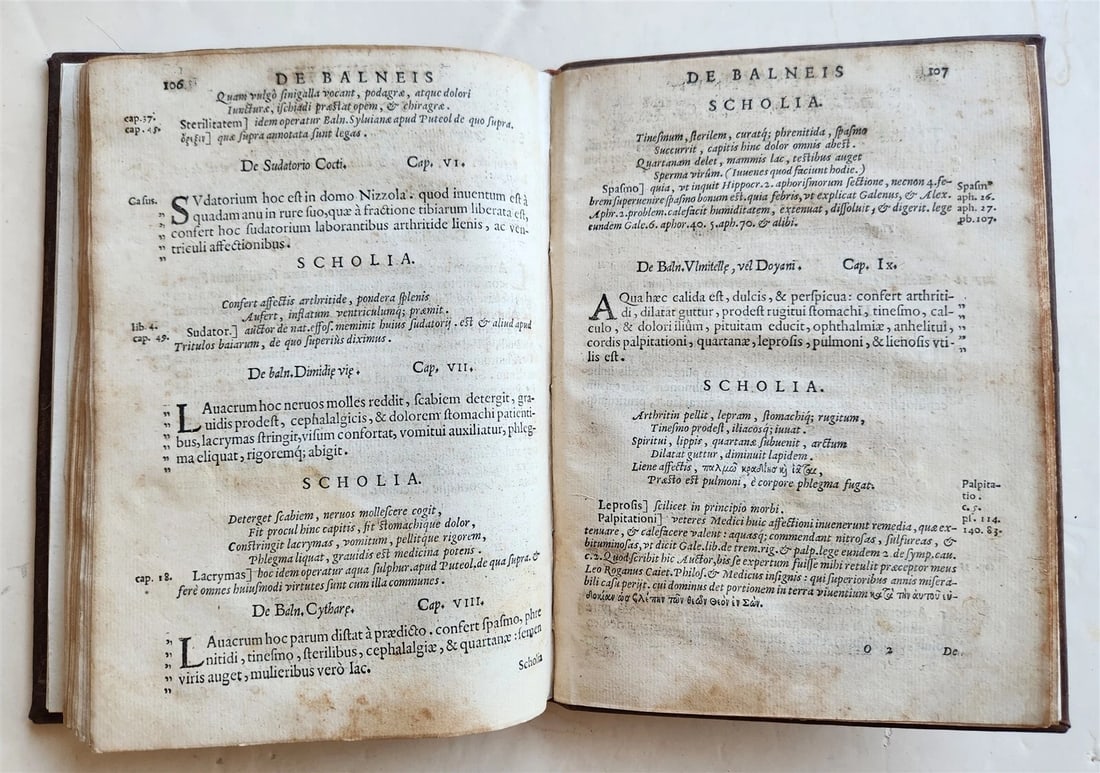 106
DE BALNEIS
Quam vulgò sinigalla vocant, podagræ, atque dolori
Iuncturæ, ischiadi præstat opem, & chiragræ.
cap. 37.
cap. 45.
Sterilitatem] idem operatur Baln. Syluianæ apud Puteol. de quo supra.
quæ supra annotata sunt legas.
De Sudatorio Cocti. Cap. VI.
Casus.
SVdatorium hoc est in domo Nizzola. quod inuentum est à
quadam anu in rure suo, quæ à fractione tibiarum liberata est,
confert hoc sudatorium laborantibus arthritide lienis, ac ven-
triculi affectionibus.
SCHOLIA.
Confert affectis arthritide, pondera splenis
Aufert, inflatum ventriculumq; præmit.
lib. 4.
cap. 49.
Sudator.] auctor de nat. effos. meminit huius sudatorij. est & aliud apud
Tritulos baiarum, de quo superius diximus.
De baln. Dimidię vię. Cap. VII.
LAuacrum hoc neruos molles reddit, scabiem detergit, gra-
uidis prodest, cephalalgicis, & dolorem stomachi patienti-
bus, lacrymas stringit, visum confortat, vomitui auxiliatur, phleg-
ma eliquat, rigoremq; abigit.
SCHOLIA.
Deterget scabiem, neruos mollescere cogit,
Fit procul hinc capitis, fit stomachique dolor,
Constringit lacrymas, vomitum, pellitque rigorem,
Phlegma liquat, grauidis est medicina potens.
cap. 18.
Lacrymas] hoc idem operatur aqua sulphur. apud Puteol. de qua supra. &
ferè omnes huiusmodi virtutes sunt cum illa communes.
De Baln. Cytharę. Cap. VIII.
LAuacrum hoc parum distat à prædicto. confert spasmo, phre
nitidi, tinesmo, sterilibus, cephalalgiæ, & quartanæ: semen
viris auget, mulieribus verò lac.
Scholia
DE BALNEIS
107
SCHOLIA.
Tinesmum, sterilem, curatq; phrenitida, spasmo
Succurrit, capitis hinc dolor omnis abest.
Quartanam delet, mammis lac, testibus auget
Sperma virûm. (Iuuenes quod faciunt hodie.)
Spasmo] quia, vt inquit Hippocr. 2. aphorismorum sectione, necnon 4. fe-
brem superuenire spasmo bonum est. quia febris, vt explicat Galenus, & Alex.
Aphr. 2. problem. calefacit humiditatem, extenuat, dissoluit, & digerit. lege
eundem Gale. 6. aphor. 40. 5. aph. 70. & alibi.
Spasm°
aph. 26.
aph. 27.
pb. 107.
De Baln. Vlmitellę, vel Doyani. Cap. Ix.
AQua hæc calida est, dulcis, & perspicua: confert arthriti-
di, dilatat guttur, prodest rugitui stomachi, tinesmo, cal-
culo, & dolori ilium, pituitam educit, ophthalmiæ, anhelitui,
cordis palpitationi, quartanæ, leprosis, pulmoni, & lienosis vti-
lis est.
SCHOLIA.
Arthritin pellit, lepram, stomachiq; rugitum,
Tinesmo prodest, iliacosq; iuuat.
Spiritui, lippis, quartanæ subuenit, arctum
Dilatat guttur, diminuit lapidem.
Liene affectis,
Præsto est pulmoni, è corpore phlegma fugat.
Palpita-
tio.
c. 5.
pl. 114.
140. 83.
Leprosis] scilicet in principio morbi.
Palpitationi] veteres Medici huic affectioni inuenerunt remedia, quæ ex-
tenuare, & calefacere valent: aquasq; commendant nitrosas, sulfureas, &
bituminosas, vt dicit Gale. lib. de trem. rig. & palp. lege eundem 2. de symp. cau.
c. 2. Quod scribit hic Auctor, bis se expertum fuisse mihi retulit præceptor meus
Leo Roganus Caiet. Philos. & Medicus insignis: qui superioribus annis misera-
bili casu perijt. cui dominus det portionem in terra viuentium
O 2
De